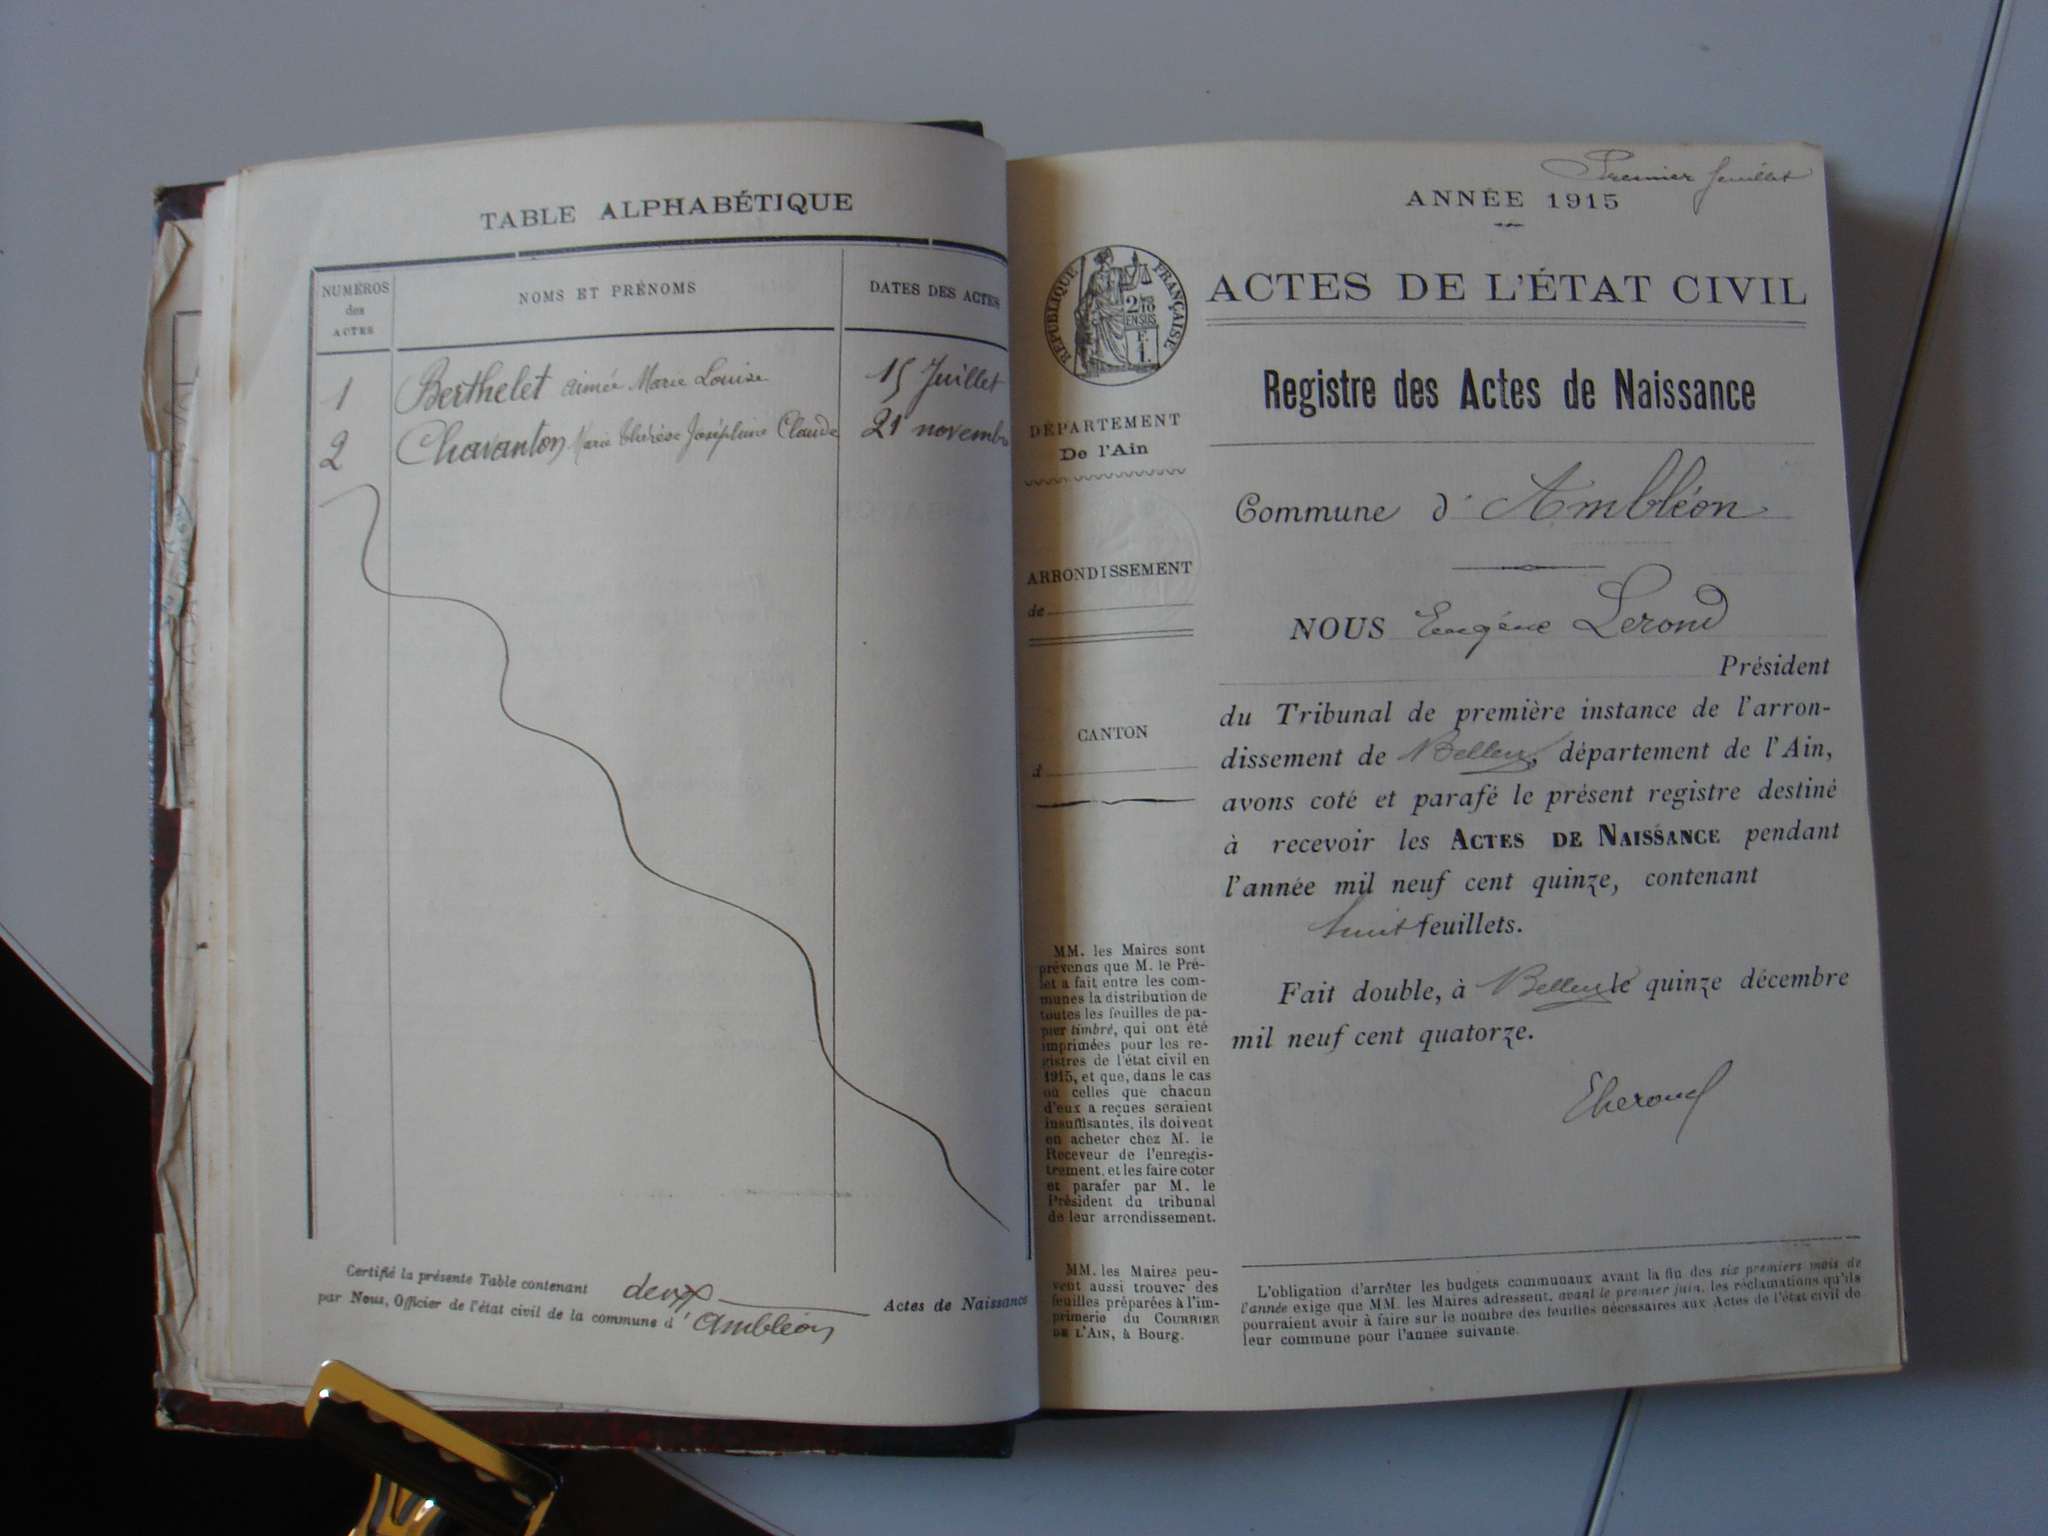 TABLE ALPHABÉTIQUE
NUMÉROS
des
ACTES
NOMS ET PRÉNOMS
DATES DES ACTES
1 Berthelet Aimée Marie Louise 15 Juillet
2 Chavanton Marie Thérèse Joséphine Claude 21 novembre
Certifié la présente Table contenant deux Actes de Naissance
par Nous, Officier de l'état civil de la commune d'Ambléon
Premier feuillet
ANNÉE 1915
RÉPUBLIQUE FRANÇAISE
2/10
EN SUS
F.
1.
ACTES DE L'ÉTAT CIVIL
Registre des Actes de Naissance
DÉPARTEMENT
De l'Ain
Commune d'Ambléon
ARRONDISSEMENT
de
NOUS Eugène Lerond
Président
CANTON
d
du Tribunal de première instance de l'arron-
dissement de Belley, département de l'Ain,
avons coté et parafé le présent registre destiné
à recevoir les ACTES DE NAISSANCE pendant
l'année mil neuf cent quinze, contenant
huit feuillets.
Fait double, à Belley le quinze décembre
mil neuf cent quatorze.
MM. les Maires sont
prévenus que M. le Pré-
fet a fait entre les com-
munes la distribution de
toutes les feuilles de pa-
pier timbré, qui ont été
imprimées pour les re-
gistres de l'état civil en
1915, et que, dans le cas
où celles que chacun
d'eux a reçues seraient
insuffisantes, ils doivent
en acheter chez M. le
Receveur de l'enregis-
trement, et les faire coter
et parafer par M. le
Président du tribunal
de leur arrondissement.
MM. les Maires peu-
vent aussi trouver des
feuilles préparées à l'im-
primerie du COURRIER
DE L'AIN, à Bourg.
L'obligation d'arrêter les budgets communaux avant la fin des six premiers mois de
l'année exige que MM. les Maires adressent, avant le premier juin, les réclamations qu'ils
pourraient avoir à faire sur le nombre des feuilles nécessaires aux Actes de l'état civil de
leur commune pour l'année suivante.